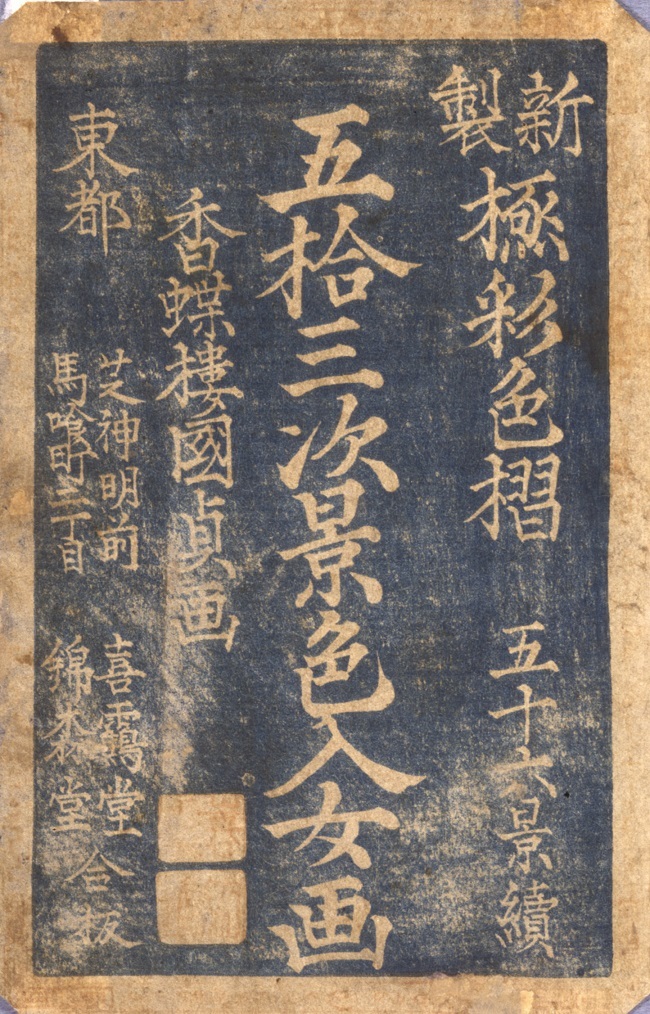 新製 極彩色摺 五十六景續
五拾三次景色入女画
香蝶樓國貞画
東都
芝神明前 喜鶴堂
馬喰町二丁目 錦森堂
合板